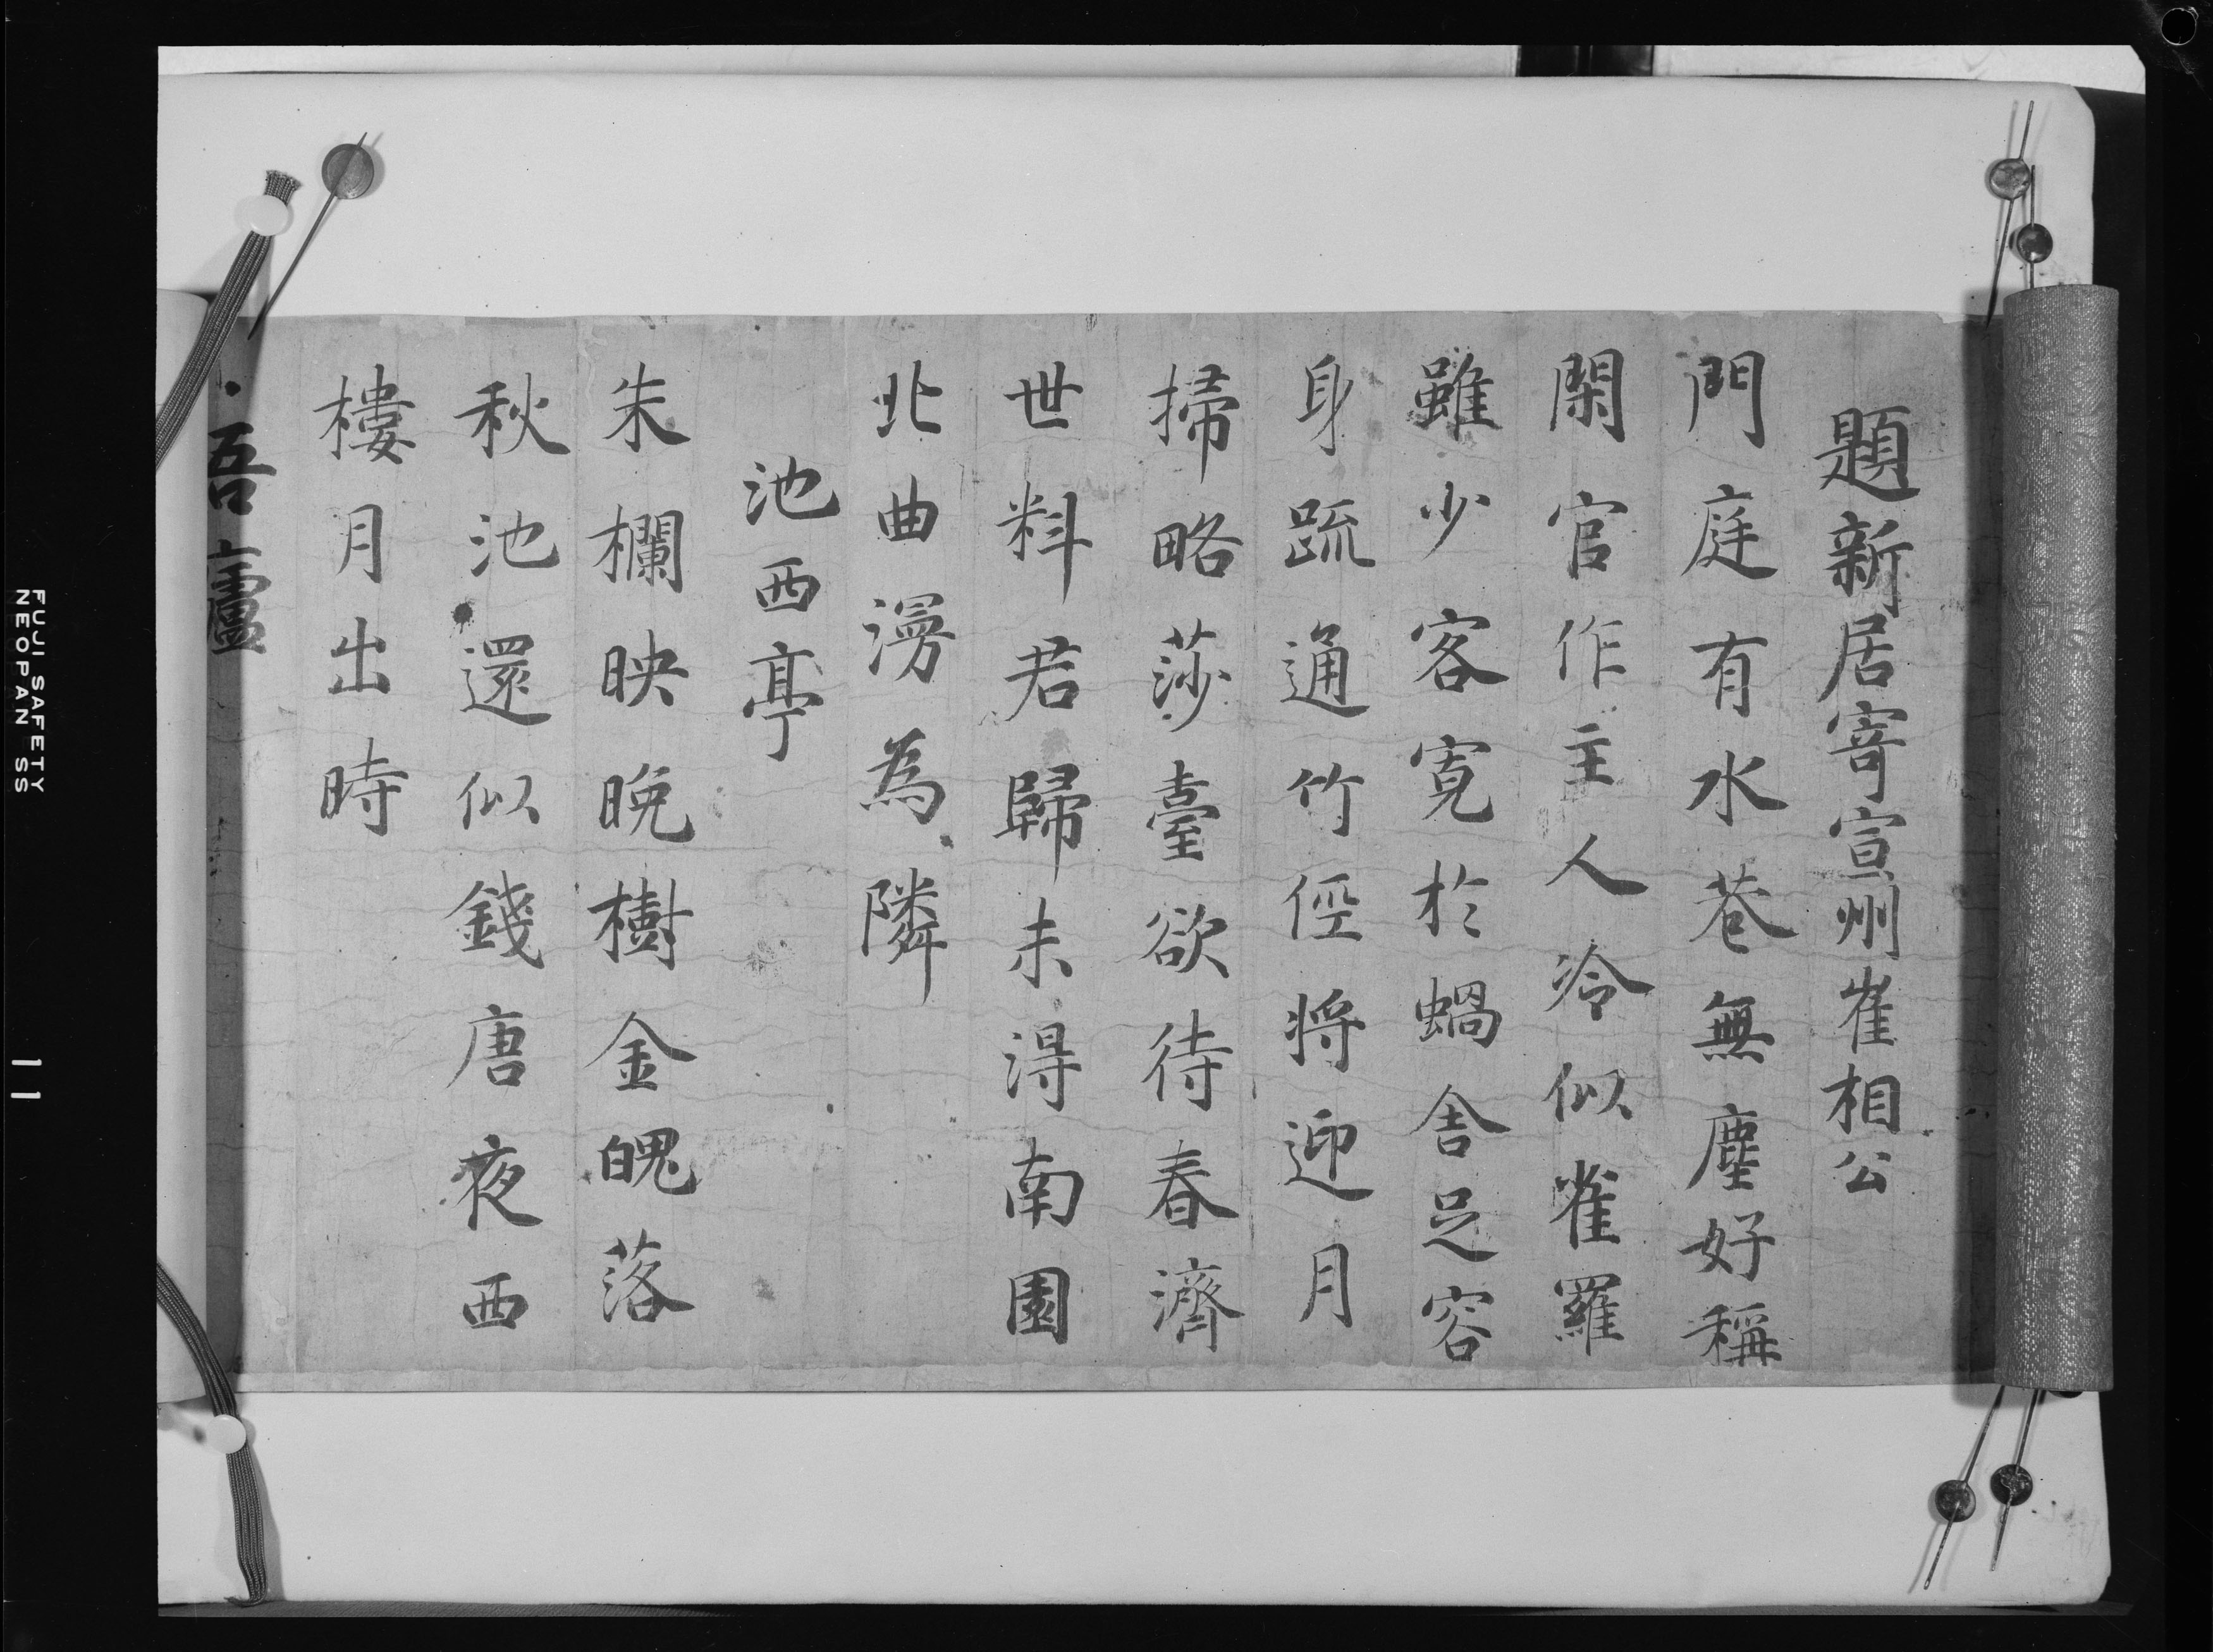 題新居寄宣州崔相公
門庭有水巷無塵好稱
閑官作主人冷似雀羅
雖少客寛於蝸舎足容
身疏通竹徑将迎月
掃略莎臺欲待春濟
世料君歸未得南園
北曲漫為隣
池西亭
朱欄映晩樹金魄落
秋池還似錢唐夜西
樓月出時
吾廬
FUJI SAFETY
NEOPAN SS
11